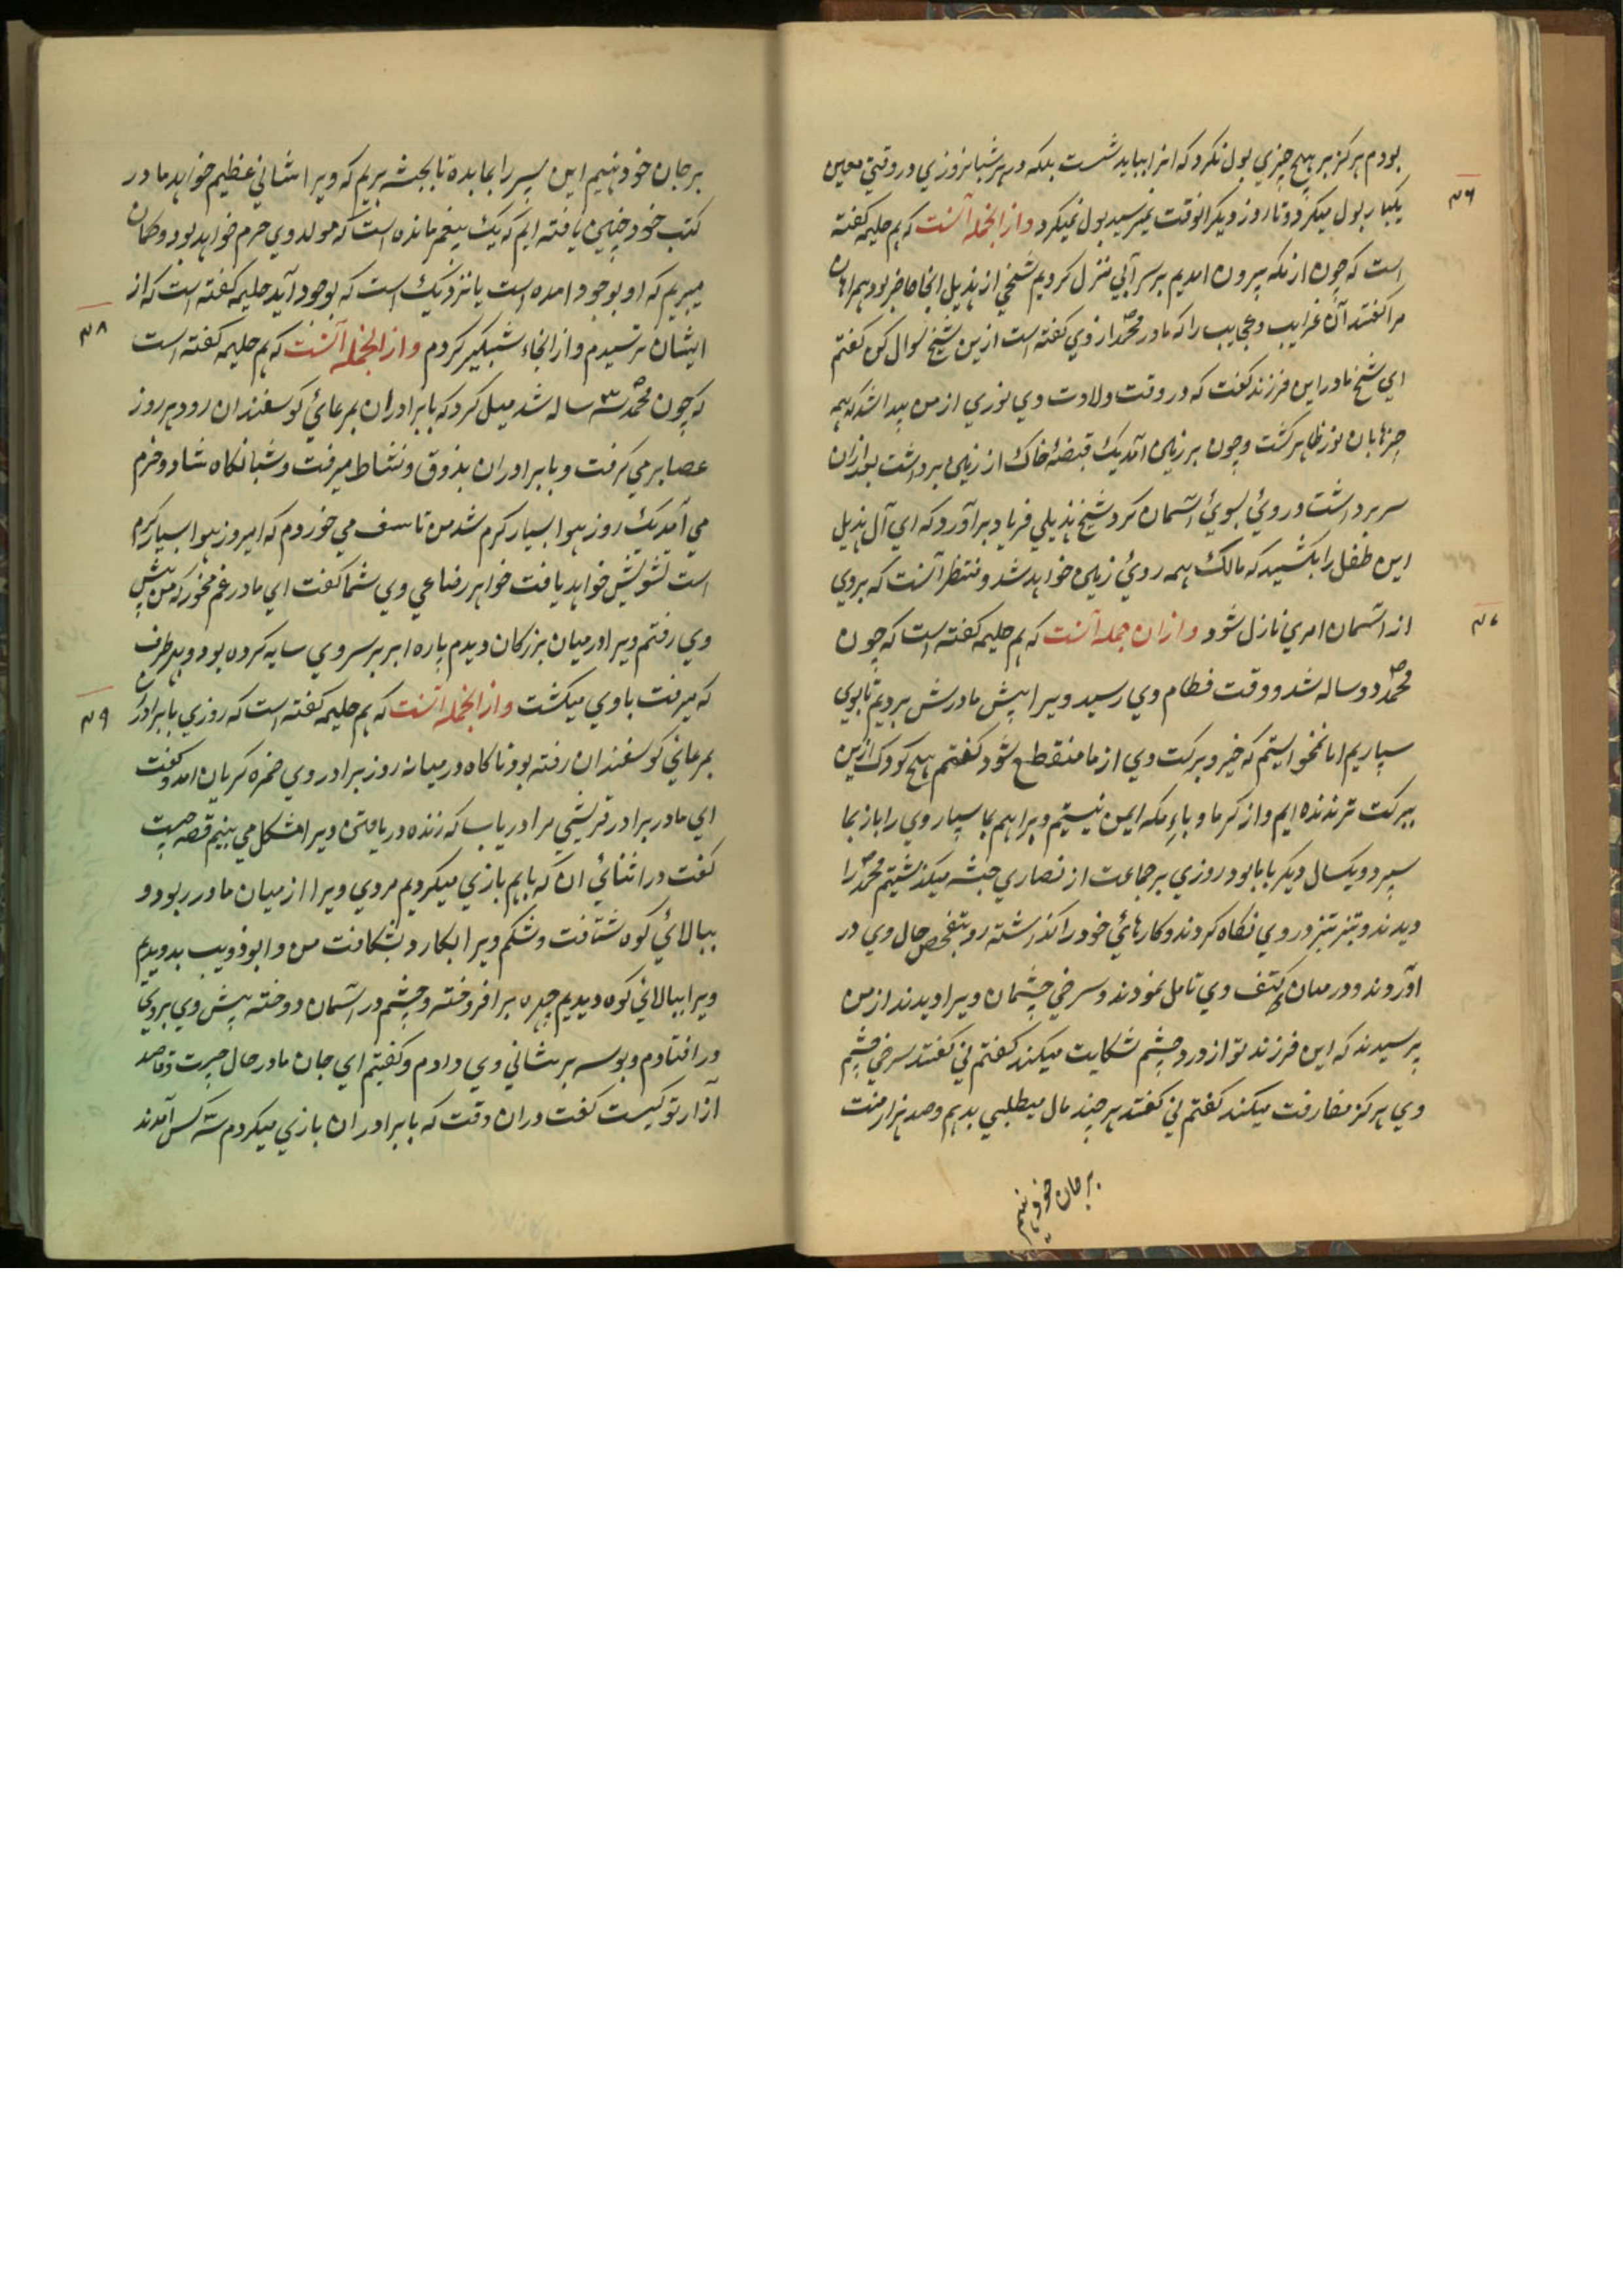 بودم هرگز بر هیچ چیزي بول نکرد که انرا بباید شست بلکه در هر شبانروزي در وقتي معین
۳۶
یکبار بول میکرد و تا روز دیگر انوقت نمیرسید بول نمیکرد وازانجمله آنست که هم حلیمه کفته
است که چون از مکه بیرون امدیم بر سر آبي نزل کردیم شیخي از هذیل انجا حاضر بود همراهان
مرا کفتند آن غرایب و عجایب را که مادر محمد از وي کفته است ازین شیخ سوال کن کفتم
اي شیخ مادر این فرزند کفت که در وقت ولادت وي نوري از من پیدا شد که همه
چیزها بان نور ظاهر کشت و چون بر زمین آمد یک قبضهٔ خاک از زمین برداشت بعد ازان
سر برداشت و روئ بسوئ آسمان کرد شیخ هذیلي فریاد برآورد که اي آل هذیل
این طفل را بکشید که مالک همه روئ زمین خواهد شد و منتظر آنست که بروي
از اسمان امري نازل شود وازان جمله آنست که هم حلیمه کفته است که چون
۳۷
محمد دو ساله شد و وقت فطام وي رسید ویرا پیش مادرش بردیم تا بوي
سپاریم اما نمخواستیم که خیر و برکت وي از ما منقطع شود کفتم هیچ کودک ازین
ببرکت تر ندیده ایم و از کرما و باءِ مکه ایمن نیستیم ویرا هم بما سپار وي را باز بما
سپرد و یکسال دیکر با ما بود روزي بر جماعت از نصاري حبشه میکذشتیم محمد را
دیدند و تیز تیز در وي نکاه کردند و کارهائ خود را کذاشته رو بتفحص حال وي در
آوردند و در میان کتف وي تامل نمودند و سرخي چشمان ویرا دیدند از من
پرسیدند که این فرزند تو از درد چشم شکایت میکند کفتم ني کفتند سرخي چشم
وي هرکز مفارقت میکند کفتم ني کفتند هر چند مال میطلبي بدهم و صد هزار منت
بر جان خود نهیم
بر جان خود نهیم این پسر را بما بده تا بحبشه بریم که ویرا شاني عظیم خواهد ما در
کتب خود چنین یافته ایم که یک پیغمبر مانده است که مولد وي حرم خواهد بود و کمان
میبریم که او بوجود امده است یا نزدیک است که بوجود آید حلیمه کفته است که از
ایشان ترسیدم و از انجاء شبکیر کردم وازانجمله آنست که هم حلیمه کفته است
۳۸
که چون محمد سه ساله شد میل کرد که با برادران بمرعائ کوسفندان رود هر روز
عصا بر مي کرفت و با برادران بذوق و نشاط میرفت و شبانکاه شاد و خرم
مي آمد یک روز هوا بسیار کرم شد من تاسف مي خوردم که امروز هوا بسیار کرم
است تشویش خواهد یافت خواهر رضاعي وي شما کفت اي مادر غم مخور که من پیش
وي رفتم ویرا در میان بزرکان دیدم پاره ابر بر سر وي سایه کرده بود و بهر طرف
که میرفت با وي میکشت وازانجمله آنست که هم حلیمه کفته است که روزي با برادران
۳۹
بمرعائي کوسفندان رفته بود ناکاه در میانه روز برادر وي ضمره کریان امد و کفت
اي مادر برادر قریشي مرا دریاب که زنده دریافتن ویرا مشکل مي بینم قصه چیست
کفت در اثنائي ان که باهم بازي میکردیم مردي ویرا از میان ما در ربود و
ببالائي کوه شتافت و شکم ویرا بکارد بشکافت من و ابوذویب بدویدیم
ویرا ببالائي کوه دیدیم چهره برافروخته و چشم در آسمان دوخته پیش وي بروي
در افتادم و بوسه بر پیشاني وي دادم و کفتم اي جان مادر حال چیست و قاصد
آزار تو کیست کفت دران وقت که با برادران بازي میکردم سه کس آمدند